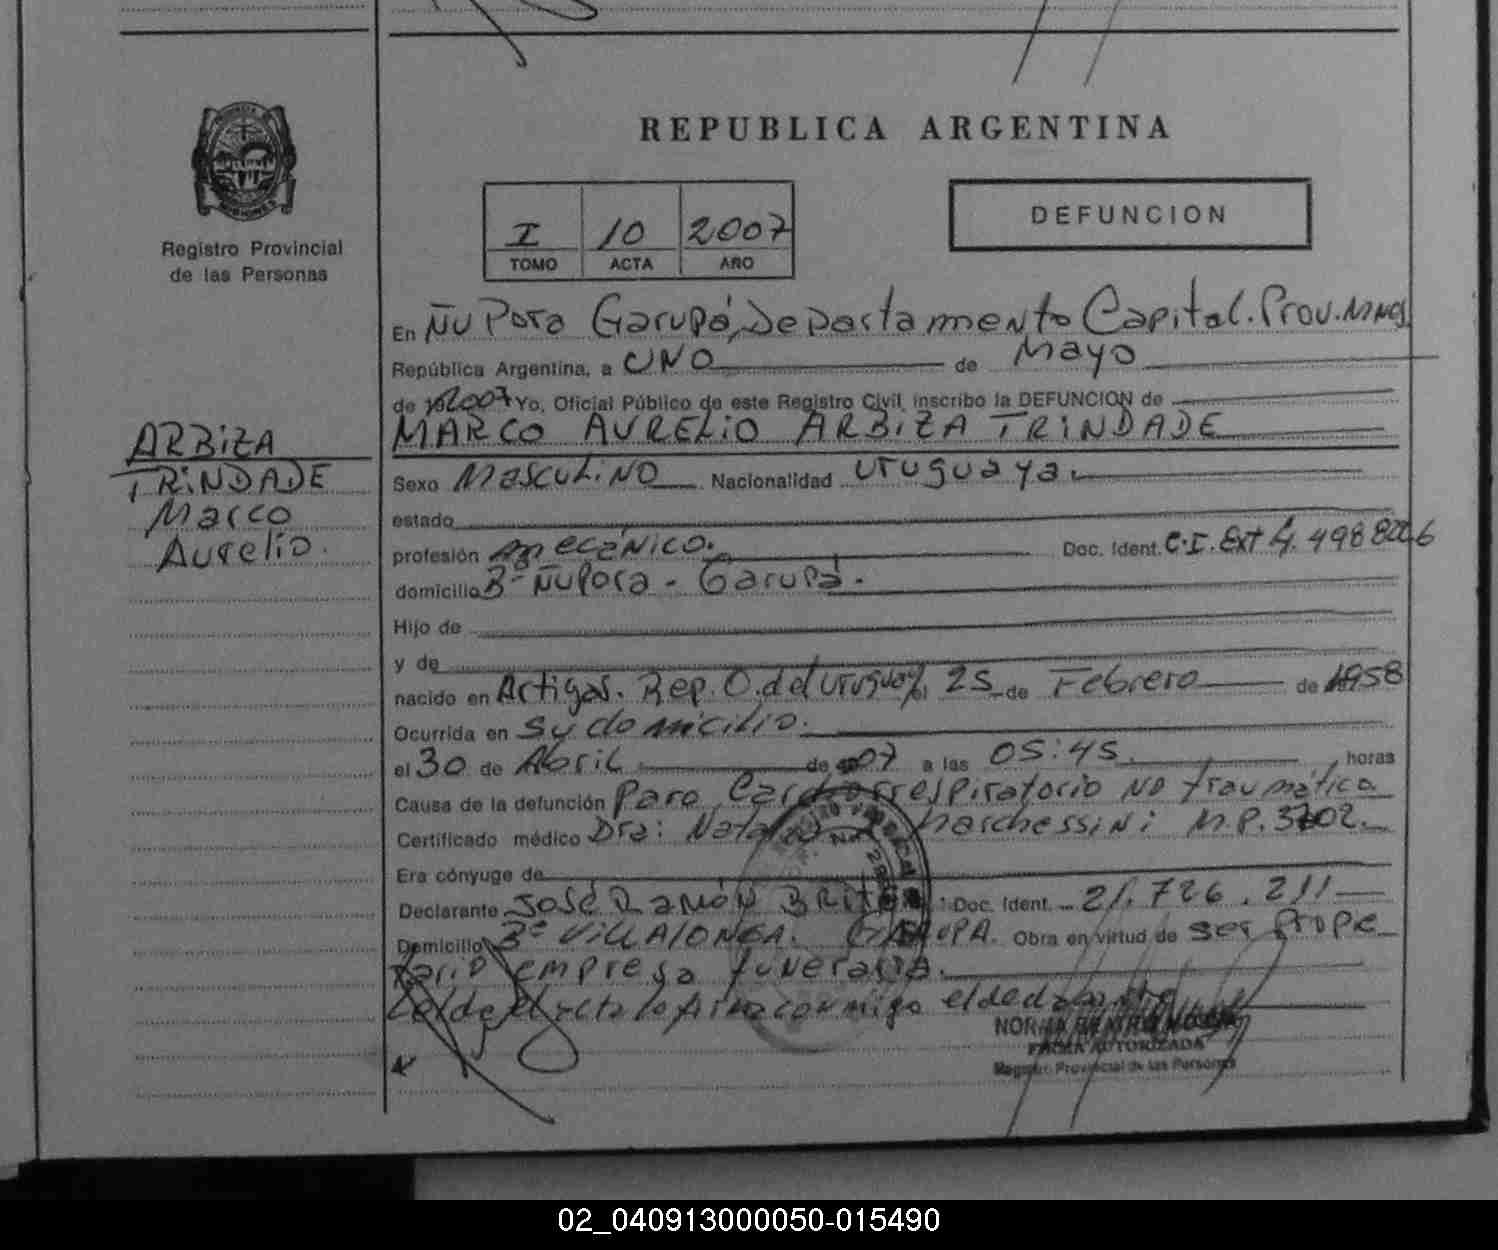 REPUBLICA ARGENTINA
Registro Provincial
de las Personas
I 10 2007
TOMO ACTA AÑO
DEFUNCION
ARBIZA
TRINDADE
Marco
Aurelio.
En Ñu Pora Garupá, Departamento Capital. Prov. Mnes.
República Argentina, a UNO de Mayo
de 2007 Yo, Oficial Público de este Registro Civil, inscribo la DEFUNCION de
MARCO AURELIO ARBIZA TRINDADE
Sexo Masculino Nacionalidad uruguaya.
estado
profesión mecánico. Doc. Ident. C.I. Ext 4.498
domicilio Bº Ñu Pora - Garupá.
Hijo de
y de
nacido en Artigas. Rep. O. del Uruguay el 25 de Febrero de 1958
Ocurrida en su domicilio.
el 30 de Abril de 07 a las 05:45. horas
Causa de la defunción Paro Cardiorrespiratorio no traumático
Certificado médico Dra: Marchessini M.P. 3702.
Era cónyuge de
Declarante José Ramón Brite Doc. Ident. 21.726.211
Domicilio Bº VILLALONGA. GARUPA. Obra en virtud de ser Propie
tario empresa funeraria.
Leída el acta la firma conmigo el declarante
NORMA BEATRIZ
FIRMA AUTORIZADA
Registro Provincial de las Personas
02_040913000050-015490